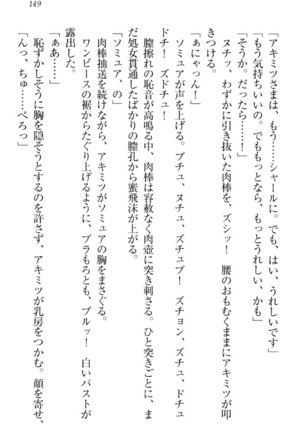 149
「アキミツさまは、もう……シャールに。でも、はい、うれしいです」
「もう気持ちいいの。でももっとなら、もっとうれしい、かも」
「そうか。だったら……！」
ヌチッ、わずかに引き抜いた肉棒を、ズシッ！　腰のおもむくままにアキミツが叩
きつける。
「あにゃっん！」
ソミュアが声を上げる。ブチュ、ヌチュ、ズチュブ！　ズチョン、ズチュ、ドチュ
ドチ！　ズドチュ！
膣擦れの恥音が高鳴る中、肉棒は容赦なく肉壺に突き刺さる。ひと突きごとに、ま
だ処女貫通したばかりの膣孔から蜜飛沫が上がる。
「ソミュア、の」
肉棒抽送を続けながら、アキミツがソミュアの胸をまさぐる。
ワンピースの裾からたぐり上げるように、ブラもろとも、ブルッ！　白いバストが
露出した。
「ぁあ……」
恥ずかしそうに胸を隠そうとするのを許さず、アキミツが乳房をつかむ。顔を寄せ、
「んっ、ちゅ……ぺろっ」